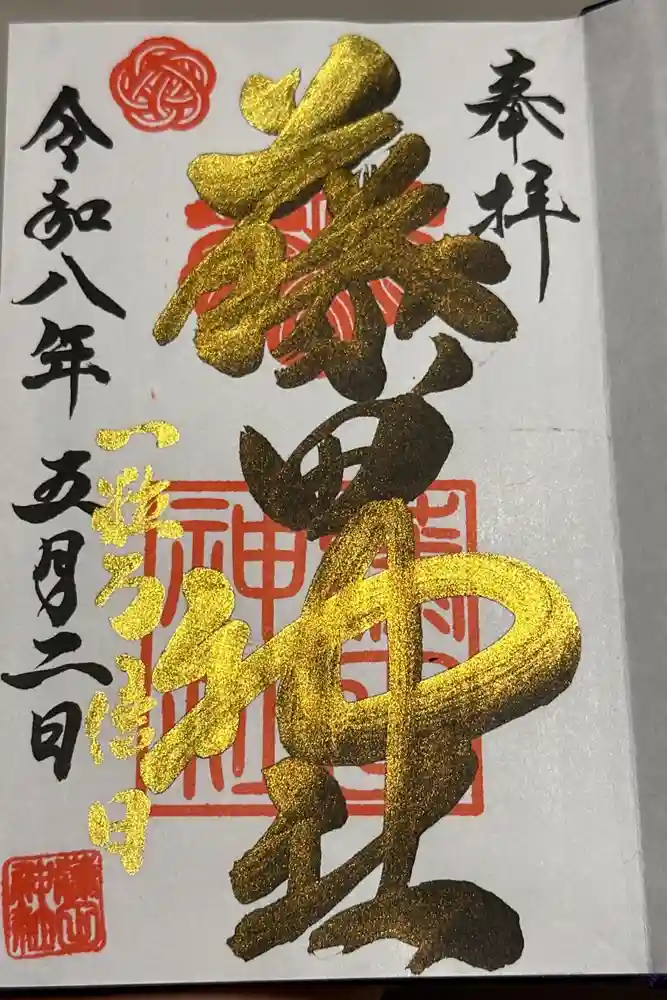 奉拝
神社
令和八年 五月二日
一粒万倍日